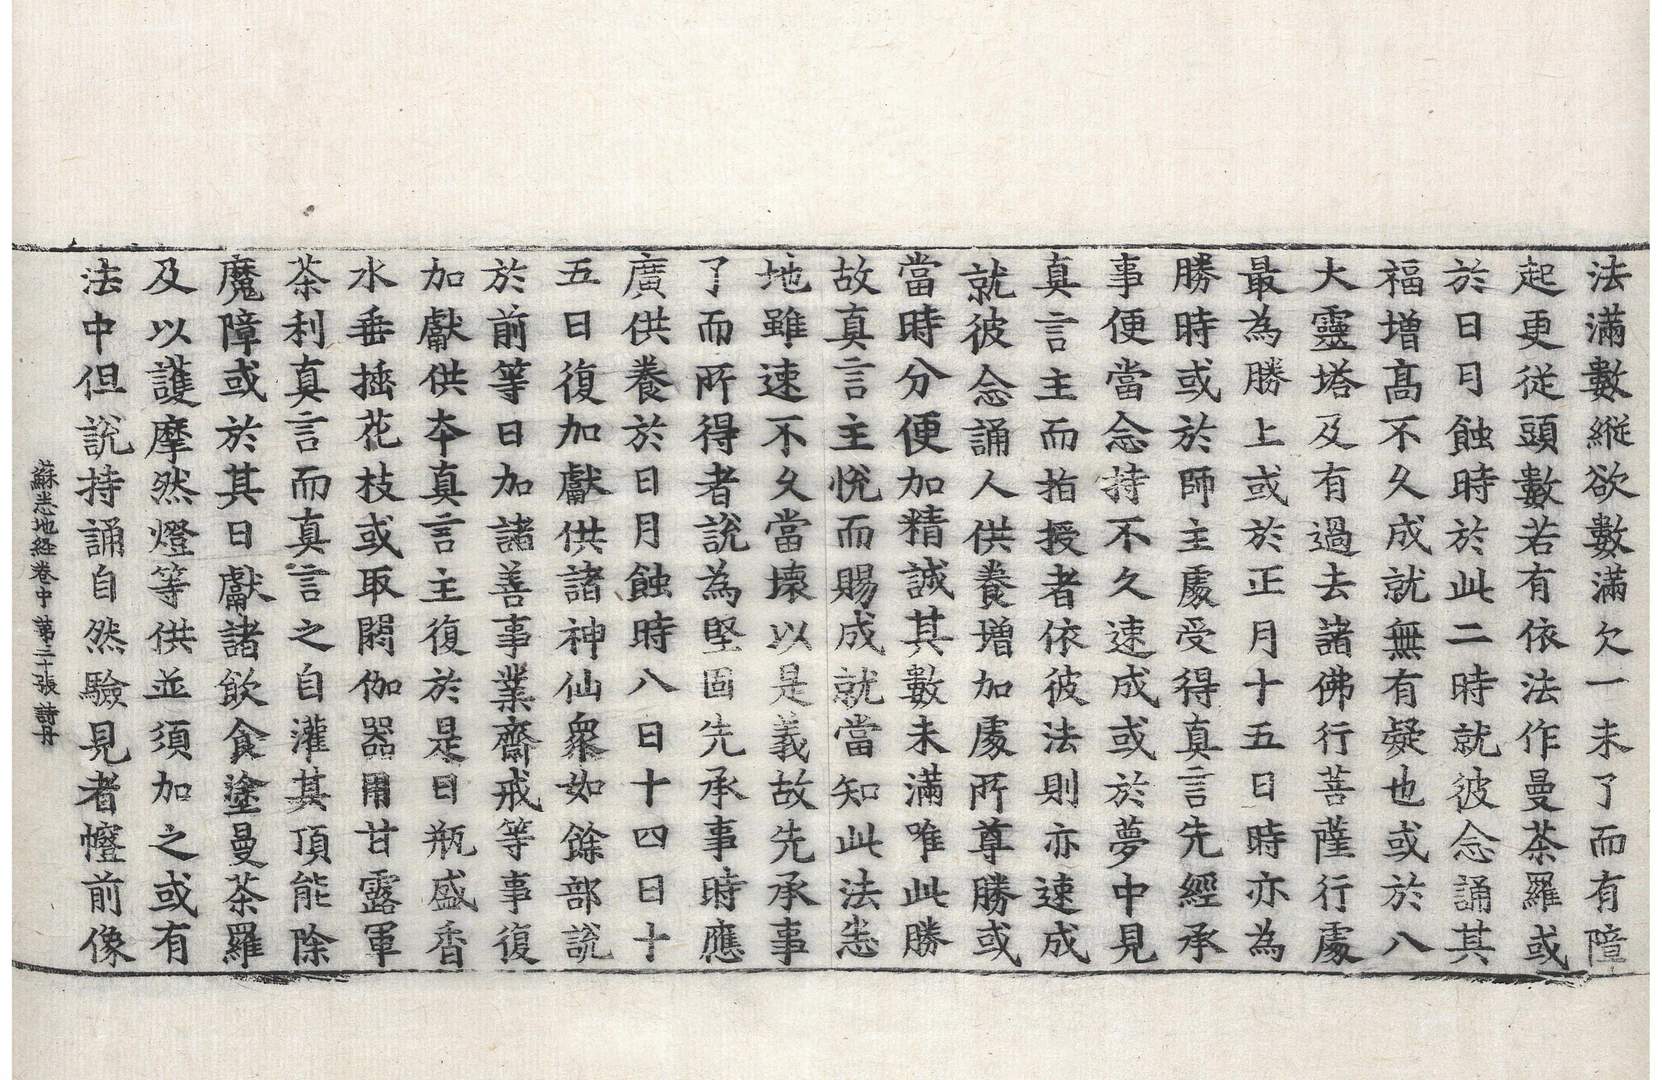 法滿數縱欲數滿欠一未了而有障
起更従頭數數若有依法作曼荼羅或
於日月蝕時於此二時就彼念誦其
福增高不久成就無有疑也或於八
大靈塔及有過去諸佛行菩薩行處
最為勝上或於正月十五日時亦為
勝時或於師主處受得真言先經承
事便當念持不久速成或於夢中見
真言主而指授者依彼法則亦速成
就彼念誦人供養增加處所尊勝或
當時分便加精誠其數未滿唯此勝
故真言主悅而賜成就當知此法悉
地雖速不久當壞以是義故先承事
了而所得者說為堅固先承事時應
廣供養於日月蝕時八日十四日十
五日復加獻供諸神仙衆如餘部說
於前等日加諸善事業齋戒等事復
加獻供本真言主復於是日瓶盛香
水垂挿花枝或取閼伽器用甘露軍
荼利真言而真言之自灌其頂能除
魔障或於其日獻諸飲食塗曼荼羅
及以護摩然燈等供並須加之或有
法中但說持誦自然驗見者幢前像
蘇悉地経卷中 第二十張 詩丹